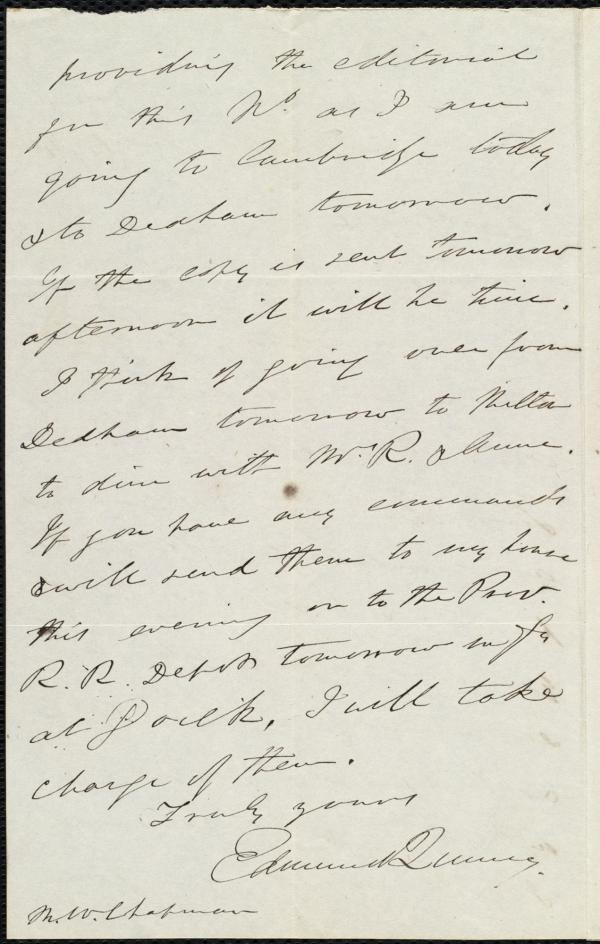 providing the editorial
for this No. as I am
going to Cambridge today
& to Dedham tomorrow.
If the copy is sent tomorrow
afternoon it will be time.
I think of going over from
Dedham tomorrow to Milton
to dine with Mr. R. & Anne.
If you have any commands
& will send them to my house
this evening or to the Prov.
R. R. Depot tomorrow
at o'clk, I will take
charge of them.
Truly yours
Edmund Quincy.
M. W. Chapman